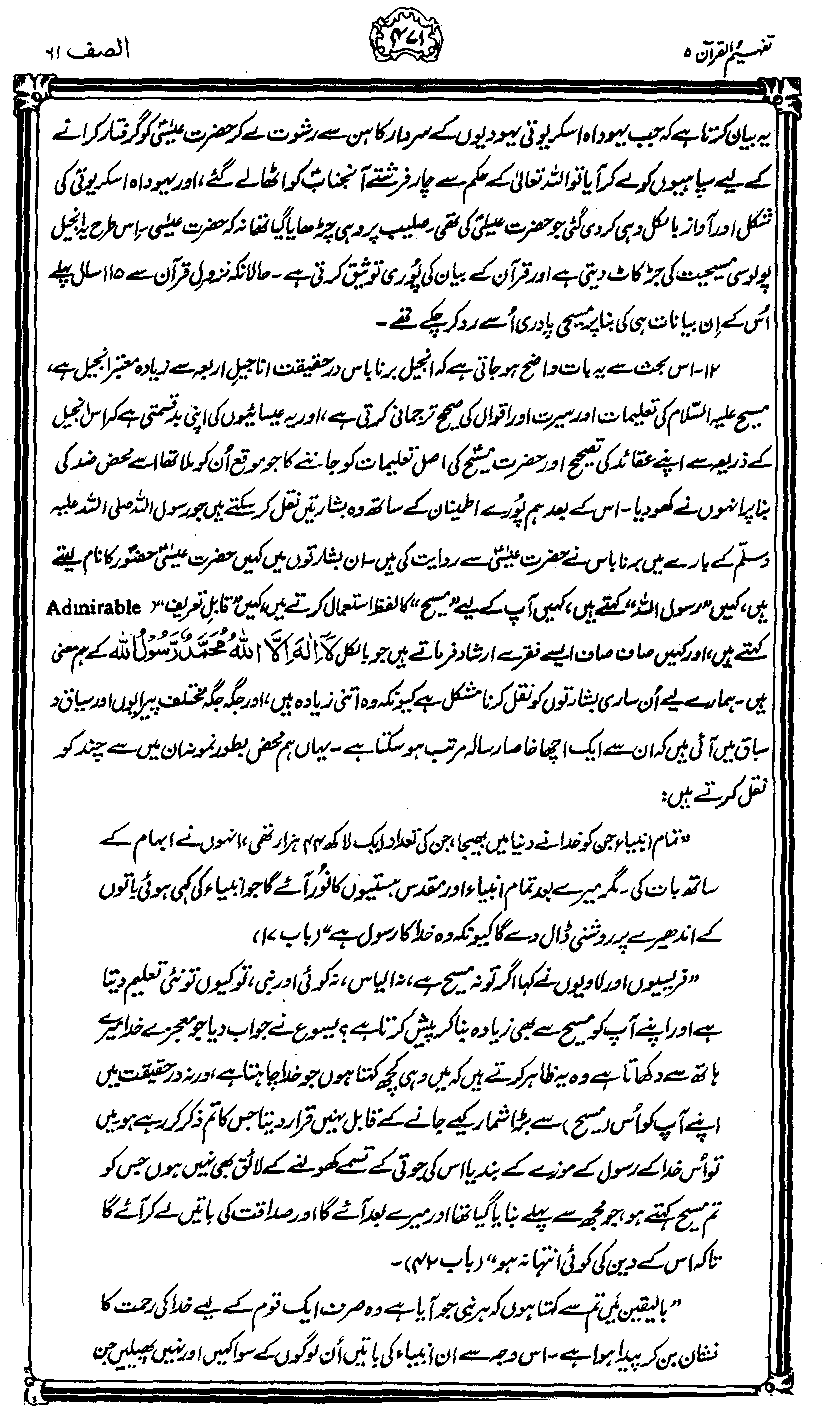 تفہیم القرآن ۵
۴۷۱
الصف ۶۱
یہ بیان کرتا ہے کہ جب یہوداہ اسکریوتی یہودیوں کے سردار کاہن سے رشوت لے کر حضرت عیسٰیؑ کو گرفتار کرانے
کے لیے سپاہیوں کو لے کر آیا تو اللہ تعالیٰ کے حکم سے چار فرشتے آنجنابؑ کو اٹھا لے گئے، اور یہوداہ اسکریوتی کی
شکل اور آواز بالکل وہی کر دی گئی جو حضرت عیسٰیؑ کی تھی۔ صلیب پر وہی چڑھایا گیا تھا نہ کہ حضرت عیسٰی۔ اس طرح یہ انجیل
پولوسی مسیحیت کی جڑ کاٹ دیتی ہے اور قرآن کے بیان کی پُوری توثیق کرتی ہے۔ حالانکہ نزولِ قرآن سے ۱۱۵ سال پہلے
اُس کے اِن بیانات ہی کی بنا پر مسیحی پادری اُسے رد کر چکے تھے۔
۱۲۔ اس بحث سے یہ بات واضح ہو جاتی ہے کہ انجیل برناباس درحقیقت اناجیل اربعہ سے زیادہ معتبر انجیل ہے،
مسیح علیہ السّلام کی تعلیمات اور سیرت اور اقوال کی صحیح ترجمانی کرتی ہے، اور یہ عیسائیوں کی اپنی بدقسمتی ہے کہ اس انجیل
کے ذریعہ سے اپنے عقائد کی تصحیح اور حضرت مسیحؑ کی اصل تعلیمات کو جاننے کا جو موقع اُن کو ملا تھا اسے محض ضد کی
بنا پر انہوں نے کھو دیا۔ اس کے بعد ہم پُورے اطمینان کے ساتھ وہ بشارتیں نقل کر سکتے ہیں جو رسول اللہ صلی اللہ علیہ
وسلّم کے بارے میں برناباس نے حضرت عیسٰیؑ سے روایت کی ہیں۔ ان بشارتوں میں کہیں حضرت عیسٰیؑ حضورؐ کا نام لیتے
ہیں، کہیں "رسول اللہ" کہتے ہیں، کہیں آپ کے لیے "مسیح" کا لفظ استعمال کرتے ہیں، کہیں "قابلِ تعریف" (Admirable
کہتے ہیں، اور کہیں صاف صاف ایسے فقرے ارشاد فرماتے ہیں جو بالکل لَا اِلٰهَ اِلَّا اللهُ مُحَمَّدٌ رَّسُوْلُ الله کے ہم معنی
ہیں۔ ہمارے لیے اُن ساری بشارتوں کو نقل کرنا مشکل ہے کیونکہ وہ اتنی زیادہ ہیں، اور جگہ جگہ مختلف پیرایوں اور سیاق و
سباق میں آئی ہیں کہ ان سے ایک اچھا خاصا رسالہ مرتب ہو سکتا ہے۔ یہاں ہم محض بطور نمونہ ان میں سے چند کو
نقل کرتے ہیں:
"تمام انبیاء جن کو خدا نے دنیا میں بھیجا، جن کی تعداد ایک لاکھ ۴۴ ہزار تھی، انہوں نے ابہام کے
ساتھ بات کی۔ مگر میرے بعد تمام انبیاء اور مقدس ہستیوں کا نُور آئے گا جو انبیاء کی کہی ہوئی باتوں
کے اندھیرے پر روشنی ڈال دے گا کیونکہ وہ خدا کا رسول ہے" (باب ۱۷)
"فریسیوں اور لاویوں نے کہا اگر تو نہ مسیح ہے، نہ الیاس، نہ کوئی اور نبی، تو کیوں تو نئی تعلیم دیتا
ہے اور اپنے آپ کو مسیح سے بھی زیادہ بنا کر پیش کرتا ہے؟ یسوع نے جواب دیا جو معجزے خدا میرے
ہاتھ سے دکھاتا ہے وہ یہ ظاہر کرتے ہیں کہ میں وہی کچھ کہتا ہوں جو خدا چاہتا ہے، ورنہ درحقیقت میں
اپنے آپ کو اُس (مسیح) سے بڑا شمار کیے جانے کے قابل نہیں قرار دیتا جس کا تم ذکر کر رہے ہو۔ میں
تو اُس خدا کے رسول کے موزے کے بند یا اس کی جوتی کے تسمے کھولنے کے لائق بھی نہیں ہوں جس کو
تم مسیح کہتے ہو، جو مجھ سے پہلے بنایا گیا تھا اور میرے بعد آئے گا اور صداقت کی باتیں لے کر آئے گا
تاکہ اس کے دین کی کوئی انتہا نہ ہو" (باب ۴۲)۔
"بالیقین میں تم سے کہتا ہوں کہ ہر نبی جو آیا ہے وہ صرف ایک قوم کے لیے خدا کی رحمت کا
نشان بن کر پیدا ہوا ہے۔ اس وجہ سے ان انبیاء کی باتیں اُن لوگوں کے سوا کہیں اور نہیں پھیلیں جن